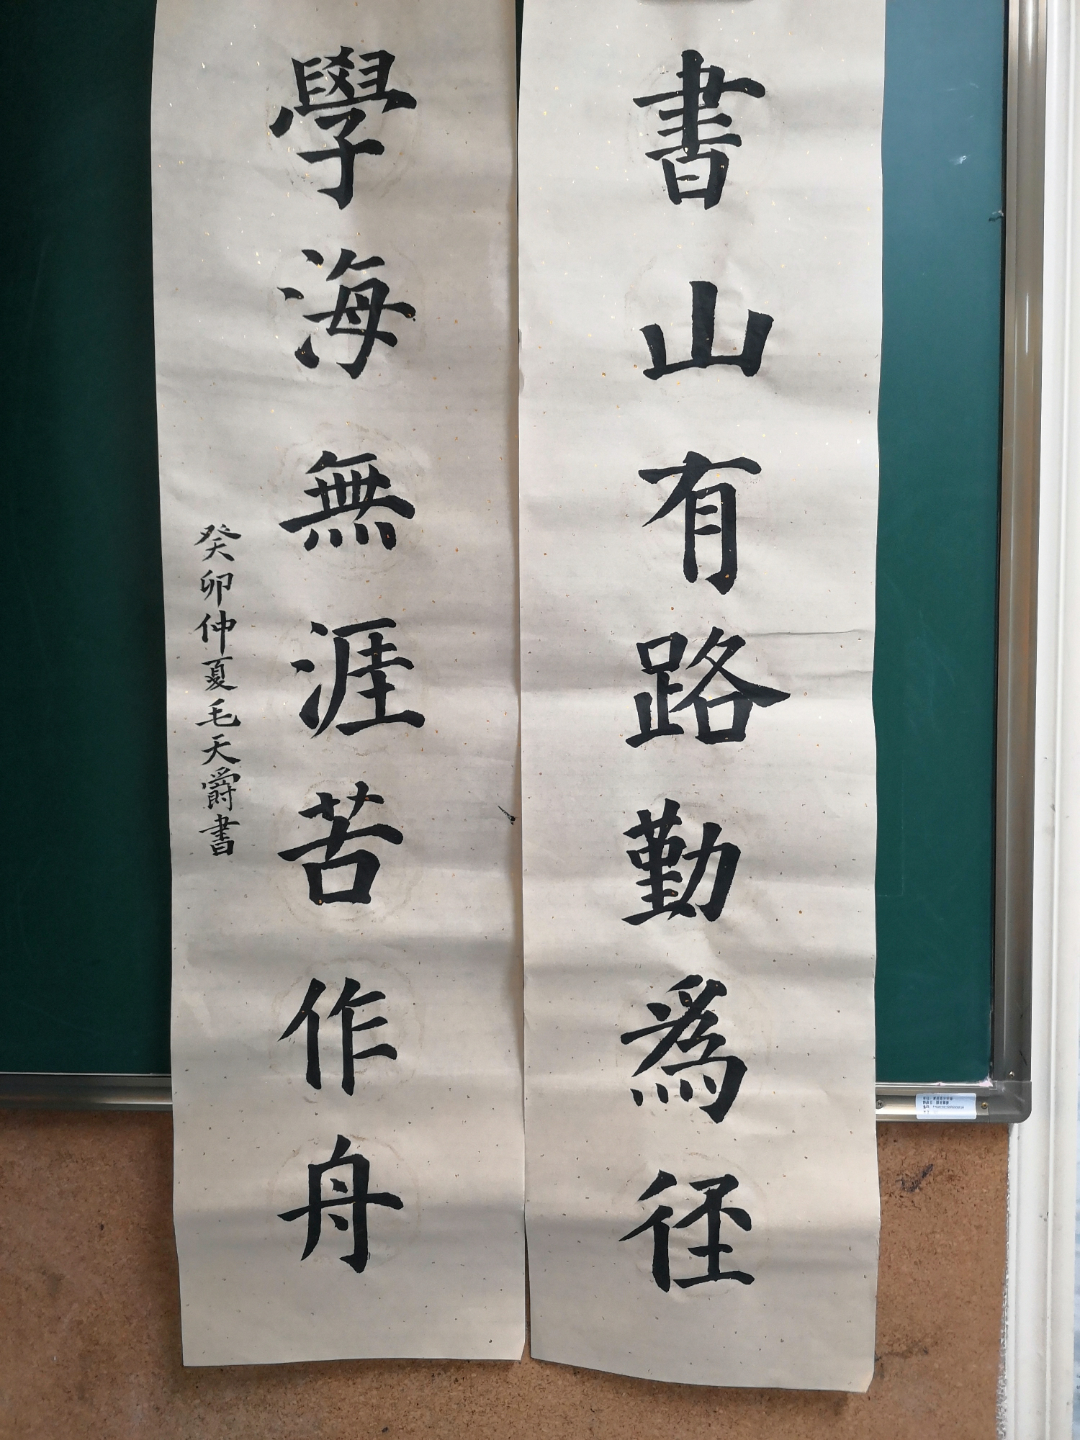 書山有路勤為徑
學海無涯苦作舟
癸卯仲夏毛天爵書